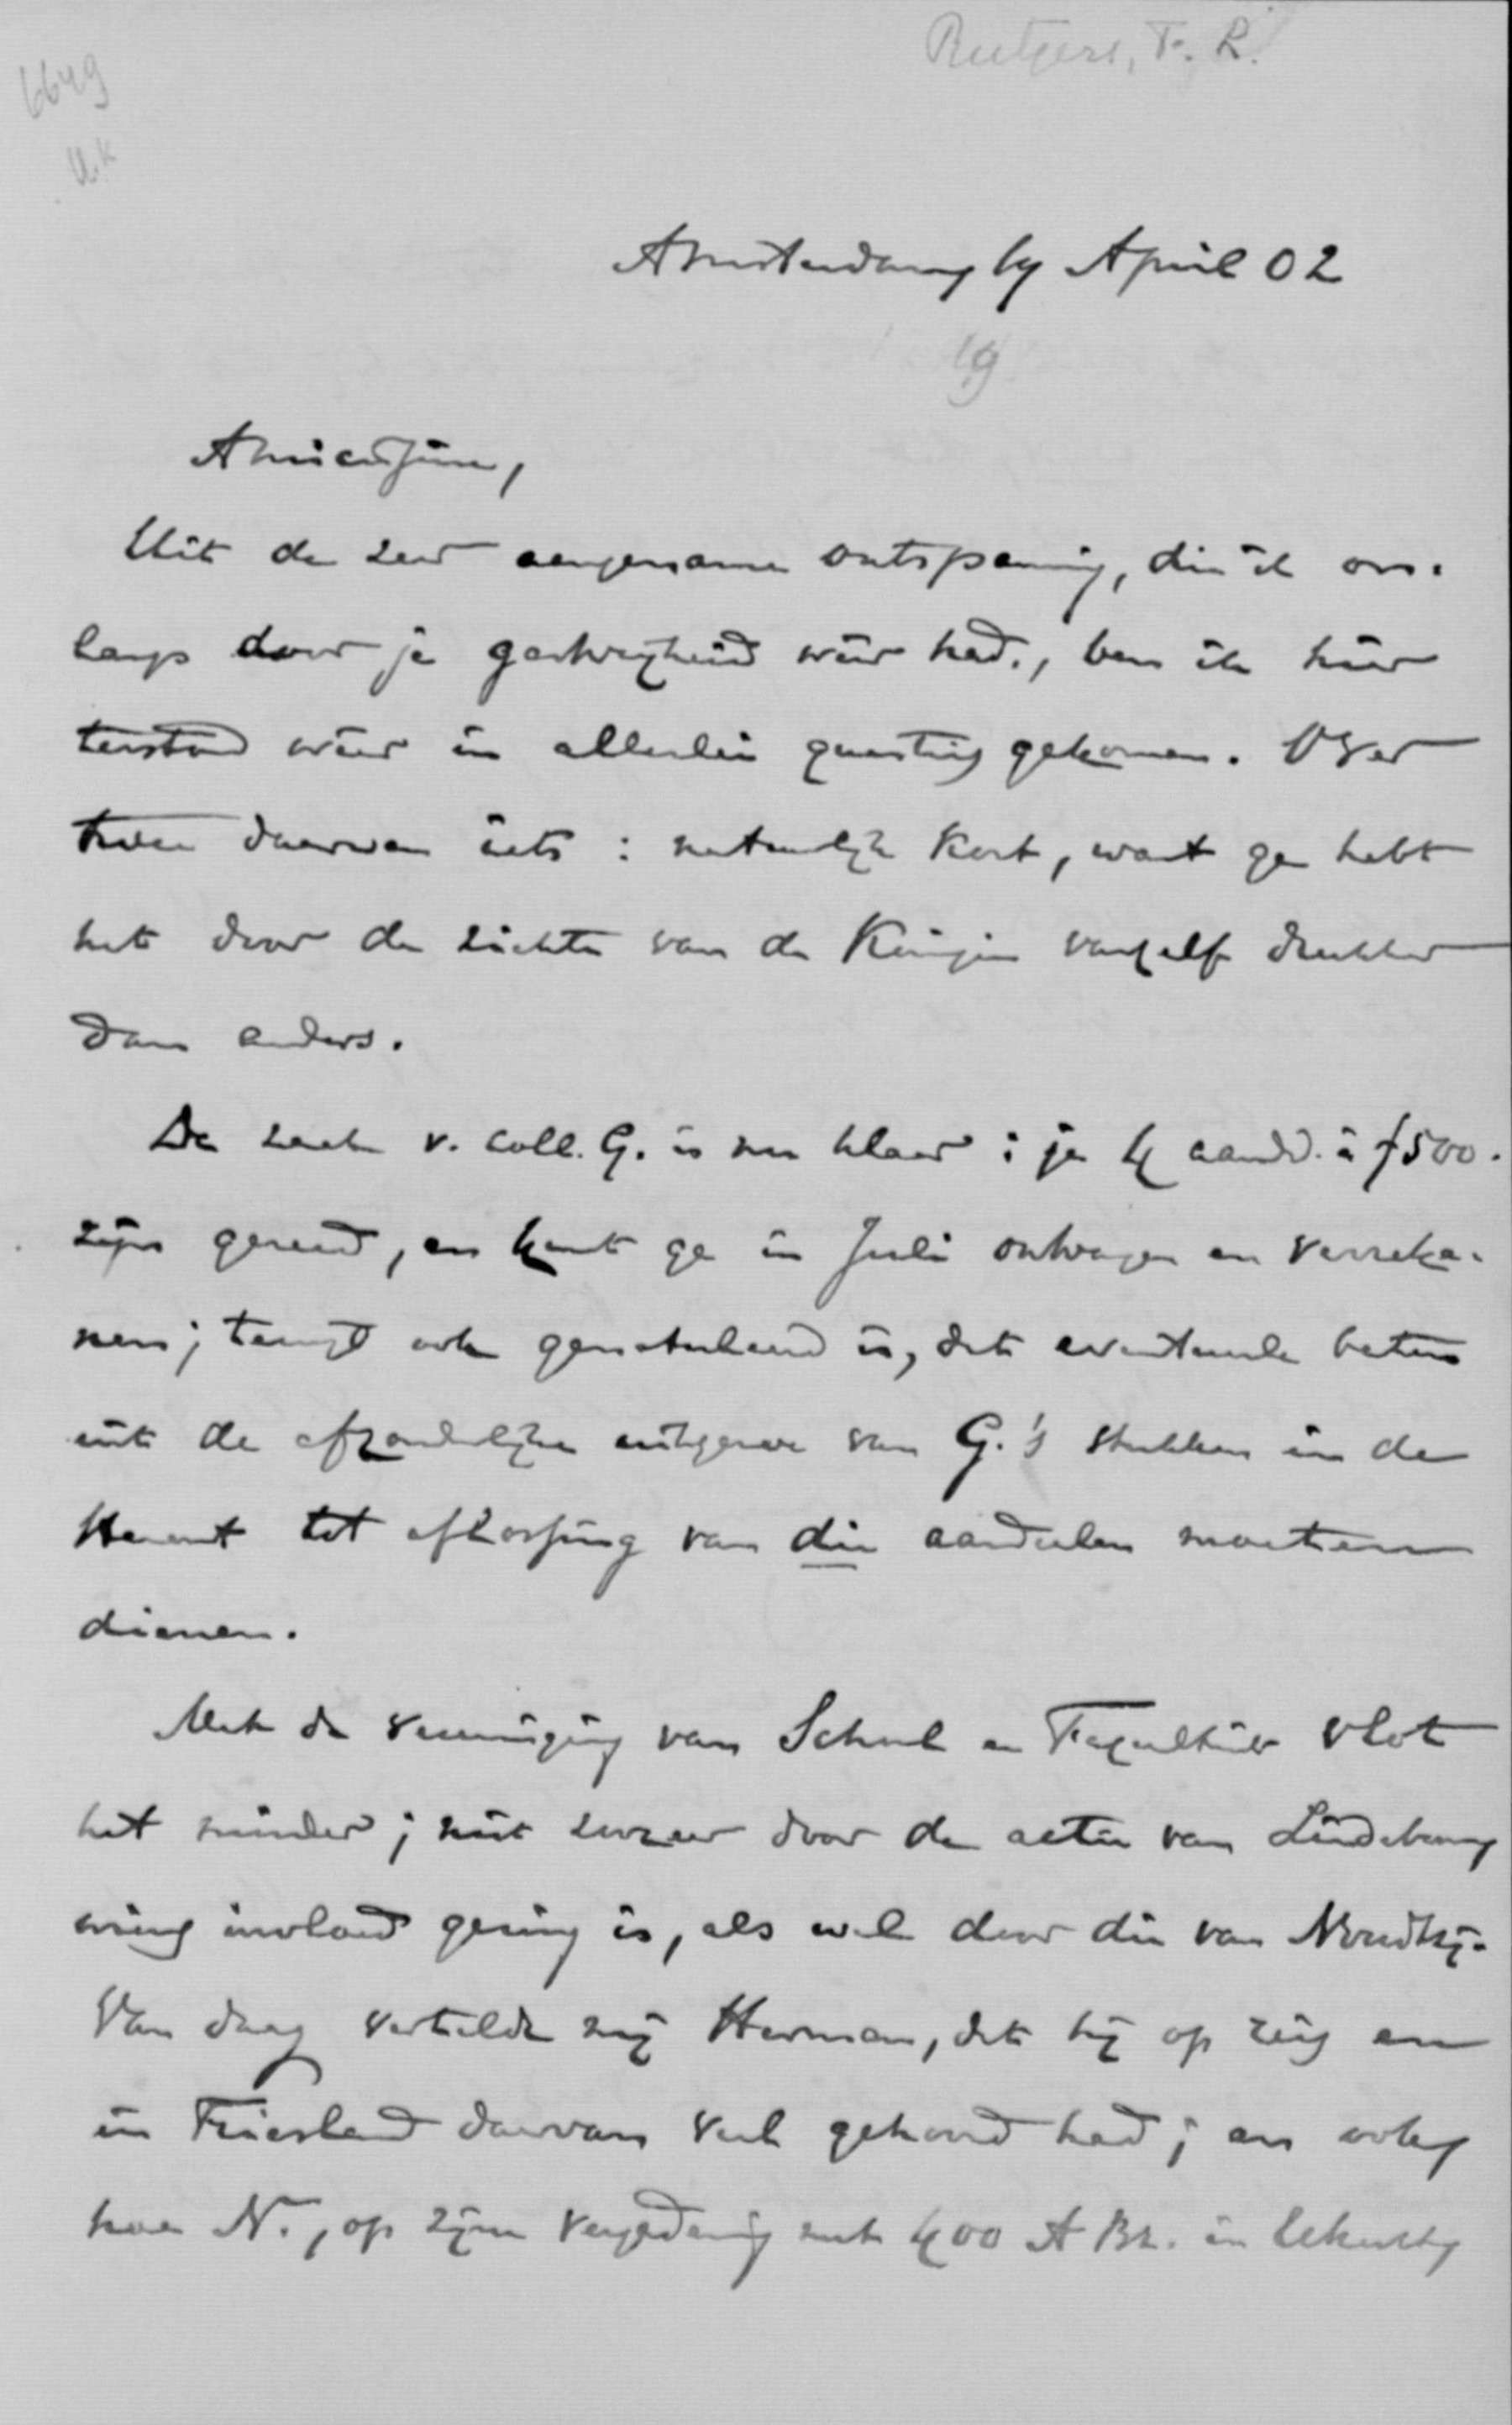 Rutgers, F. L.
6649
A.K
Amsterdam 19 April 02
19
Amicissime,
Uit de zeer aangename ontspanning, die ik on-
langs door je gastvrijheid weer had, ben ik hier
terstond weer in allerlei quaesties gekomen. Over
twee daarvan iets: natuurlijk kort, want ge hebt
het door de ziekte van de Koningin vanzelf drukker
dan anders.
De zaak v. coll. G. is nu klaar: je 4 aand. à f 500.
zijn gereed, en kunt ge in Juli ontvangen en verreke-
nen; terwijl ook genotuleerd is, dat eventueele baten
uit de afzonderlijke uitgave van G.'s stukken in de
Heraut tot aflossing van die aandeelen moeten
dienen.
Met de vereeniging van School en Faculteit vlot
het minder; niet zoozeer door de actie van Lindeboom
wiens invloed gering is, als wel door die van Noordtzij.
Van daag vertelde mij Herman, dat hij op reis en
in Friesland daarvan veel gehoord had; en ook
hoe N., op zijne vergadering met 400 A Br. in